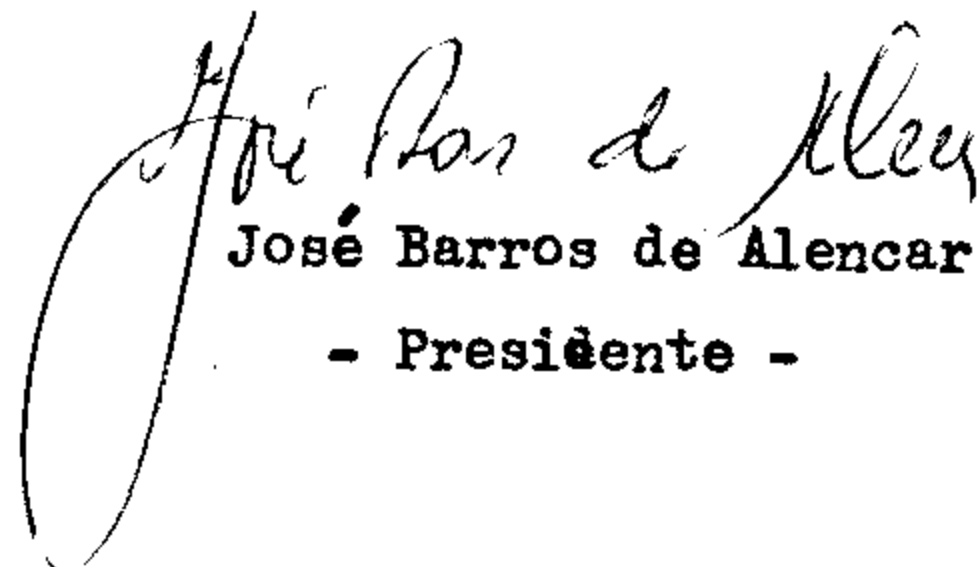 José Bar de Alen
José Barros de Alencar
- Presidente -